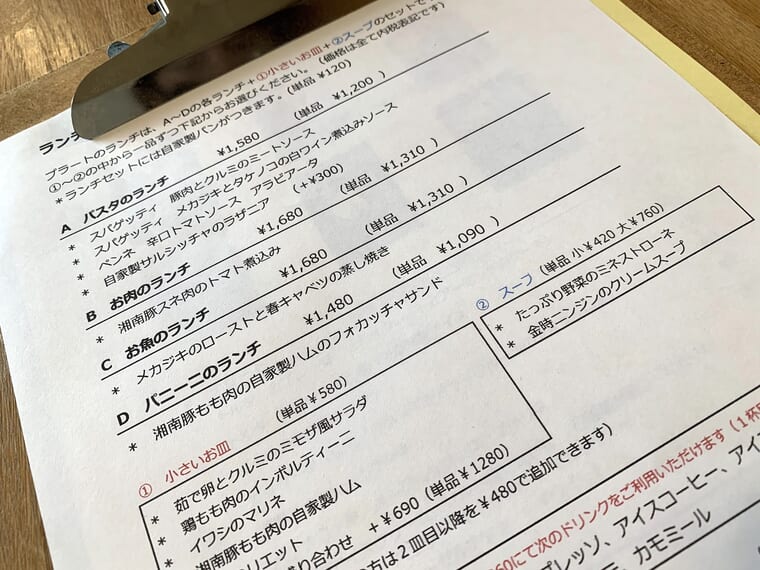 ランチ
プラートのランチは、A～Dの各ランチ+①小さいお皿+②スープのセットで
①～②の中から一品ずつ下記からお選びください。(価格は全て内税表記です)
*ランチセットには自家製パンがつきます。(単品 ¥120)
A パスタのランチ ¥1,580 (単品 ¥1,200 )
* スパゲッティ 豚肉とクルミのミートソース
* スパゲッティ メカジキとタケノコの白ワイン煮込みソース
* ペンネ 辛口トマトソース アラビアータ
* 自家製サルシッチャのラザニア (+¥300)
B お肉のランチ ¥1,680 (単品 ¥1,310 )
* 湘南豚スネ肉のトマト煮込み
C お魚のランチ ¥1,680 (単品 ¥1,310 )
* メカジキのローストと春キャベツの蒸し焼き
D パニーニのランチ ¥1,480 (単品 ¥1,090 )
* 湘南豚もも肉の自家製ハムのフォカッチャサンド
① 小さいお皿 (単品¥580)
* 茹で卵とクルミのミモザ風サラダ
* 鶏もも肉のインボルティーニ
* イワシのマリネ
* 湘南豚もも肉の自家製ハム
リエット
り合わせ +¥690(単品¥1280)
方は2皿目以降を¥480で追加できます)
② スープ (単品 小¥420 大¥760)
* たっぷり野菜のミネストローネ
* 金時ニンジンのクリームスープ
60にて次のドリンクをご利用いただけます(1杯
プレッソ、アイスコーヒー、アイ
カモミール